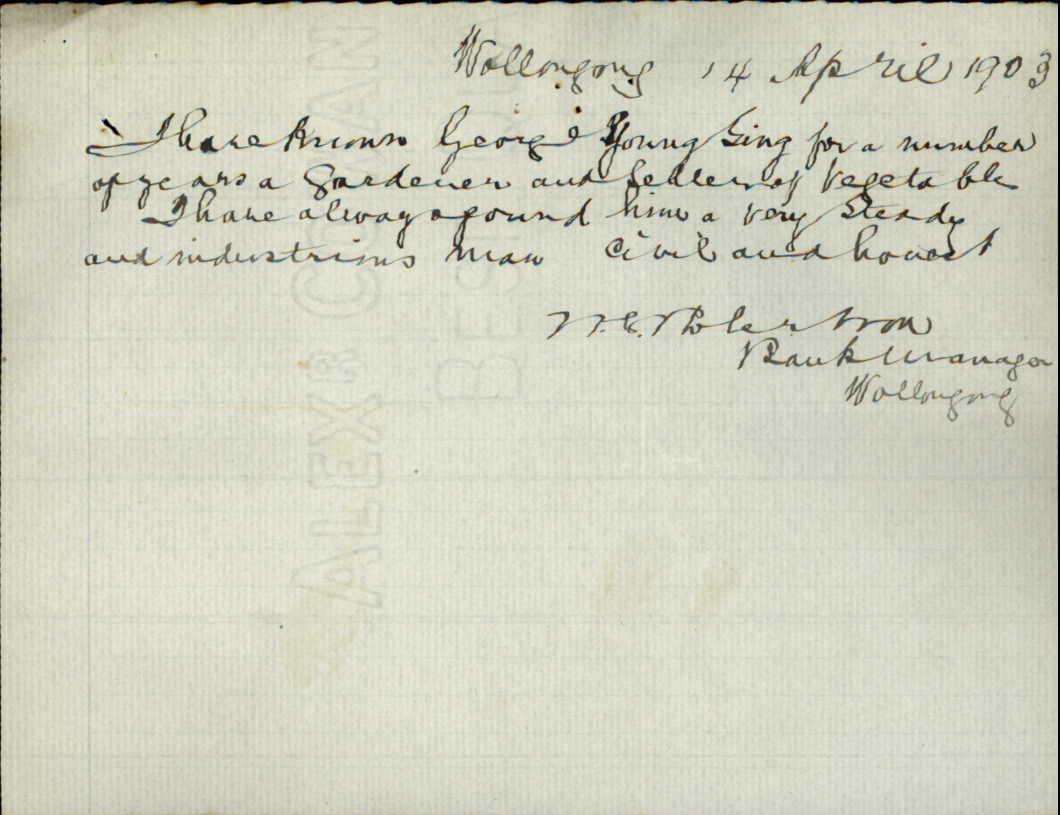 Wollongong 14 April 1903
I have known George Young Sing for a number
of years a Gardener and Seller of Vegetable
I have always found him a very Steady
and industrious man Civil and honest
W. C. Robertson
Bank Manager
Wollongong
ALEXR COWAN
BES